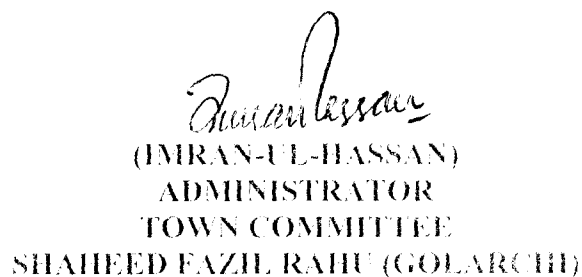 Imran Hassan
(IMRAN-UL-HASSAN)
ADMINISTRATOR
TOWN COMMITTEE
SHAHEED FAZIL RAHU (GOLARCHI)